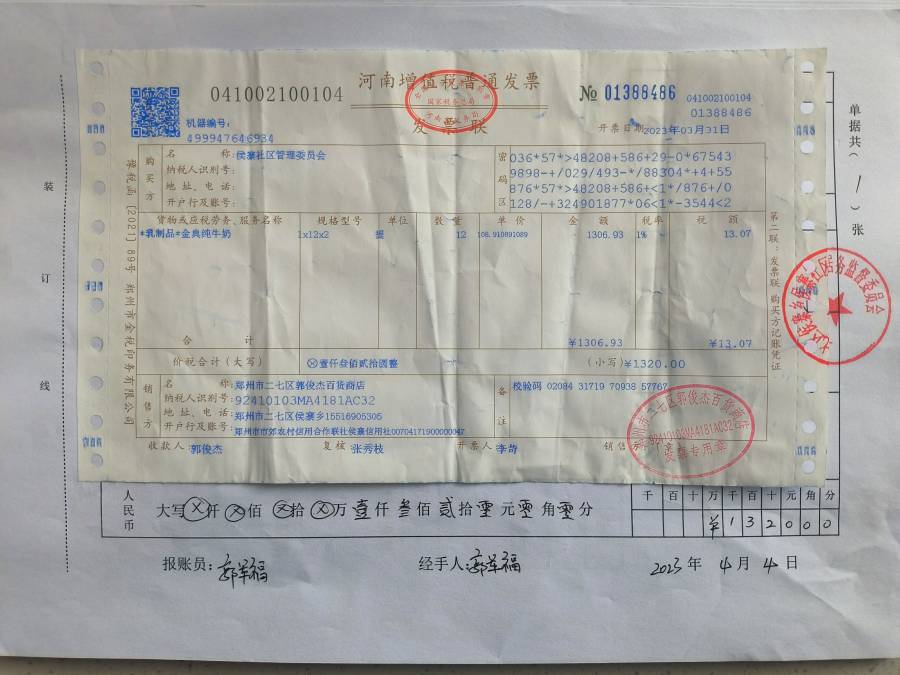 河南增值税普通发票
041002100104
№ 01388486
041002100104
01388486
国家税务总局
发票联
机器编号:
499947646934
开票日期 2023年03月31日
购买方
名 称:侯寨社区管理委员会
纳税人识别号:
地址、电话:
开户行及账号:
密码区
036*57*>48208+586+29-0*67543
9898-+/029/493-*/88304*+4+55
876*57*>48208+586+<1*/876+/0
128/-+324901877*06<1*-3544<2
货物或应税劳务、服务名称 规格型号 单位 数量 单价 金额 税率 税额
*乳制品*金典纯牛奶 1x12x2 提 12 108.910891089 1306.93 1% 13.07
合 计 ¥1306.93 ¥13.07
价税合计(大写) ⊗壹仟叁佰贰拾圆整 (小写)¥1320.00
销售方
名 称:郑州市二七区郭俊杰百货商店
纳税人识别号:92410103MA4181AC32
地址、电话:郑州市二七区侯寨乡15516905305
开户行及账号:郑州市市郊农村信用合作联社侯寨信用社00704171900000047
备注
校验码 02084 31719 70938 57767
收款人 郭俊杰 复核 张秀枝 开票人 李
郑州市二七区郭俊杰百货商店
92410103MA4181AC32
发票专用章
第二联:发票联 购买方记账凭证
税总函〔2021〕89号 郑州市金税印务有限公司
单据共( / )张
务监督委员会
装订线
人民币
大写⊗仟⊗佰⊗拾⊗万壹仟叁佰贰拾零元零角零分
千百十万千百十元角分
¥132000
报账员:郭军福 经手人:郭军福 2023年4月4日